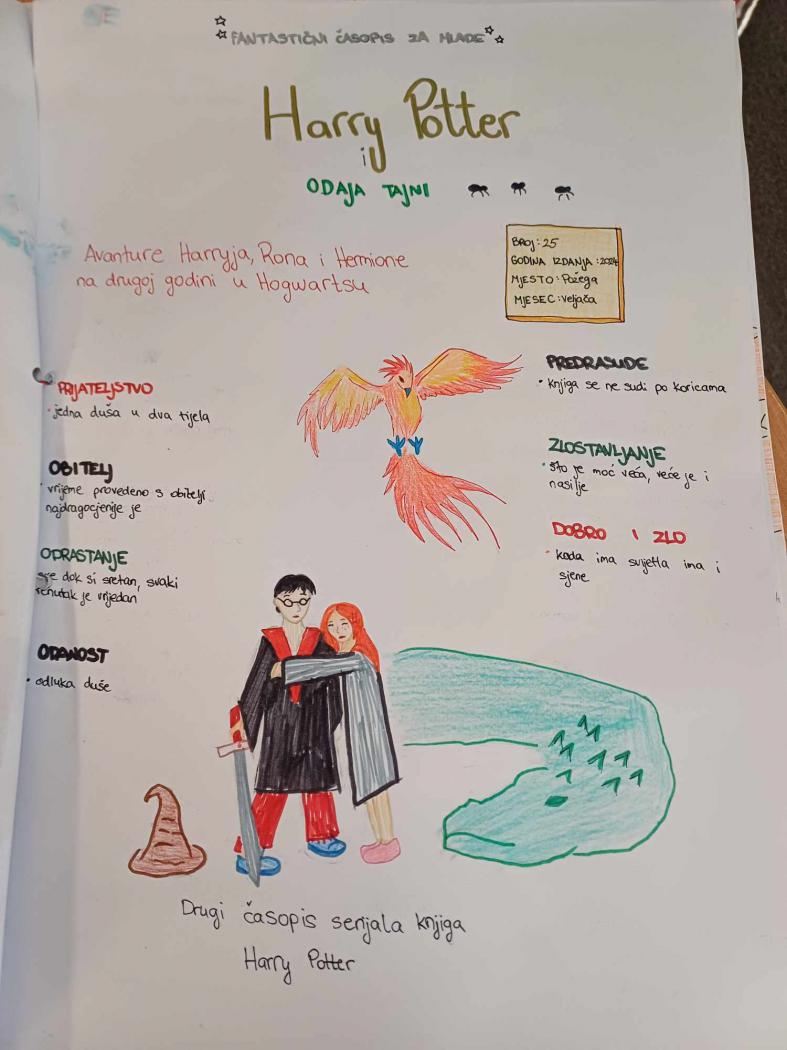 FANTASTIČNI ČASOPIS ZA MLADE
Harry Potter
i
ODAJA TAJNI
Avanture Harryja, Rona i Hermione
na drugoj godini u Hogwartsu
BROJ: 25
GODINA IZDANJA : 2024
MJESTO : Požega
MJESEC : veljača
PRIJATELJSTVO
· jedna duša u dva tijela
OBITELJ
· vrijeme provedeno s obitelji
najdragocjenije je
ODRASTANJE
sve dok si sretan, svaki
trenutak je vrijedan
ODANOST
· odluka duše
PREDRASUDE
· knjiga se ne sudi po koricama
ZLOSTAVLJANJE
· što je moć veća, veće je i
nasilje
DOBRO I ZLO
· kada ima svijetla ima i
sjene
Drugi časopis serijala knjiga
Harry Potter